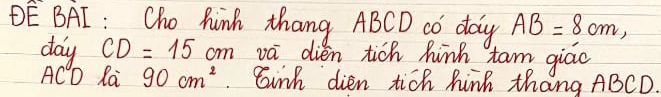 ĐỀ BÀI : Cho hình thang ABCD có đáy AB = 8 cm,
đáy CD = 15 cm và diện tích hình tam giác
ACD là 90 cm². Tính diện tích hình thang ABCD.